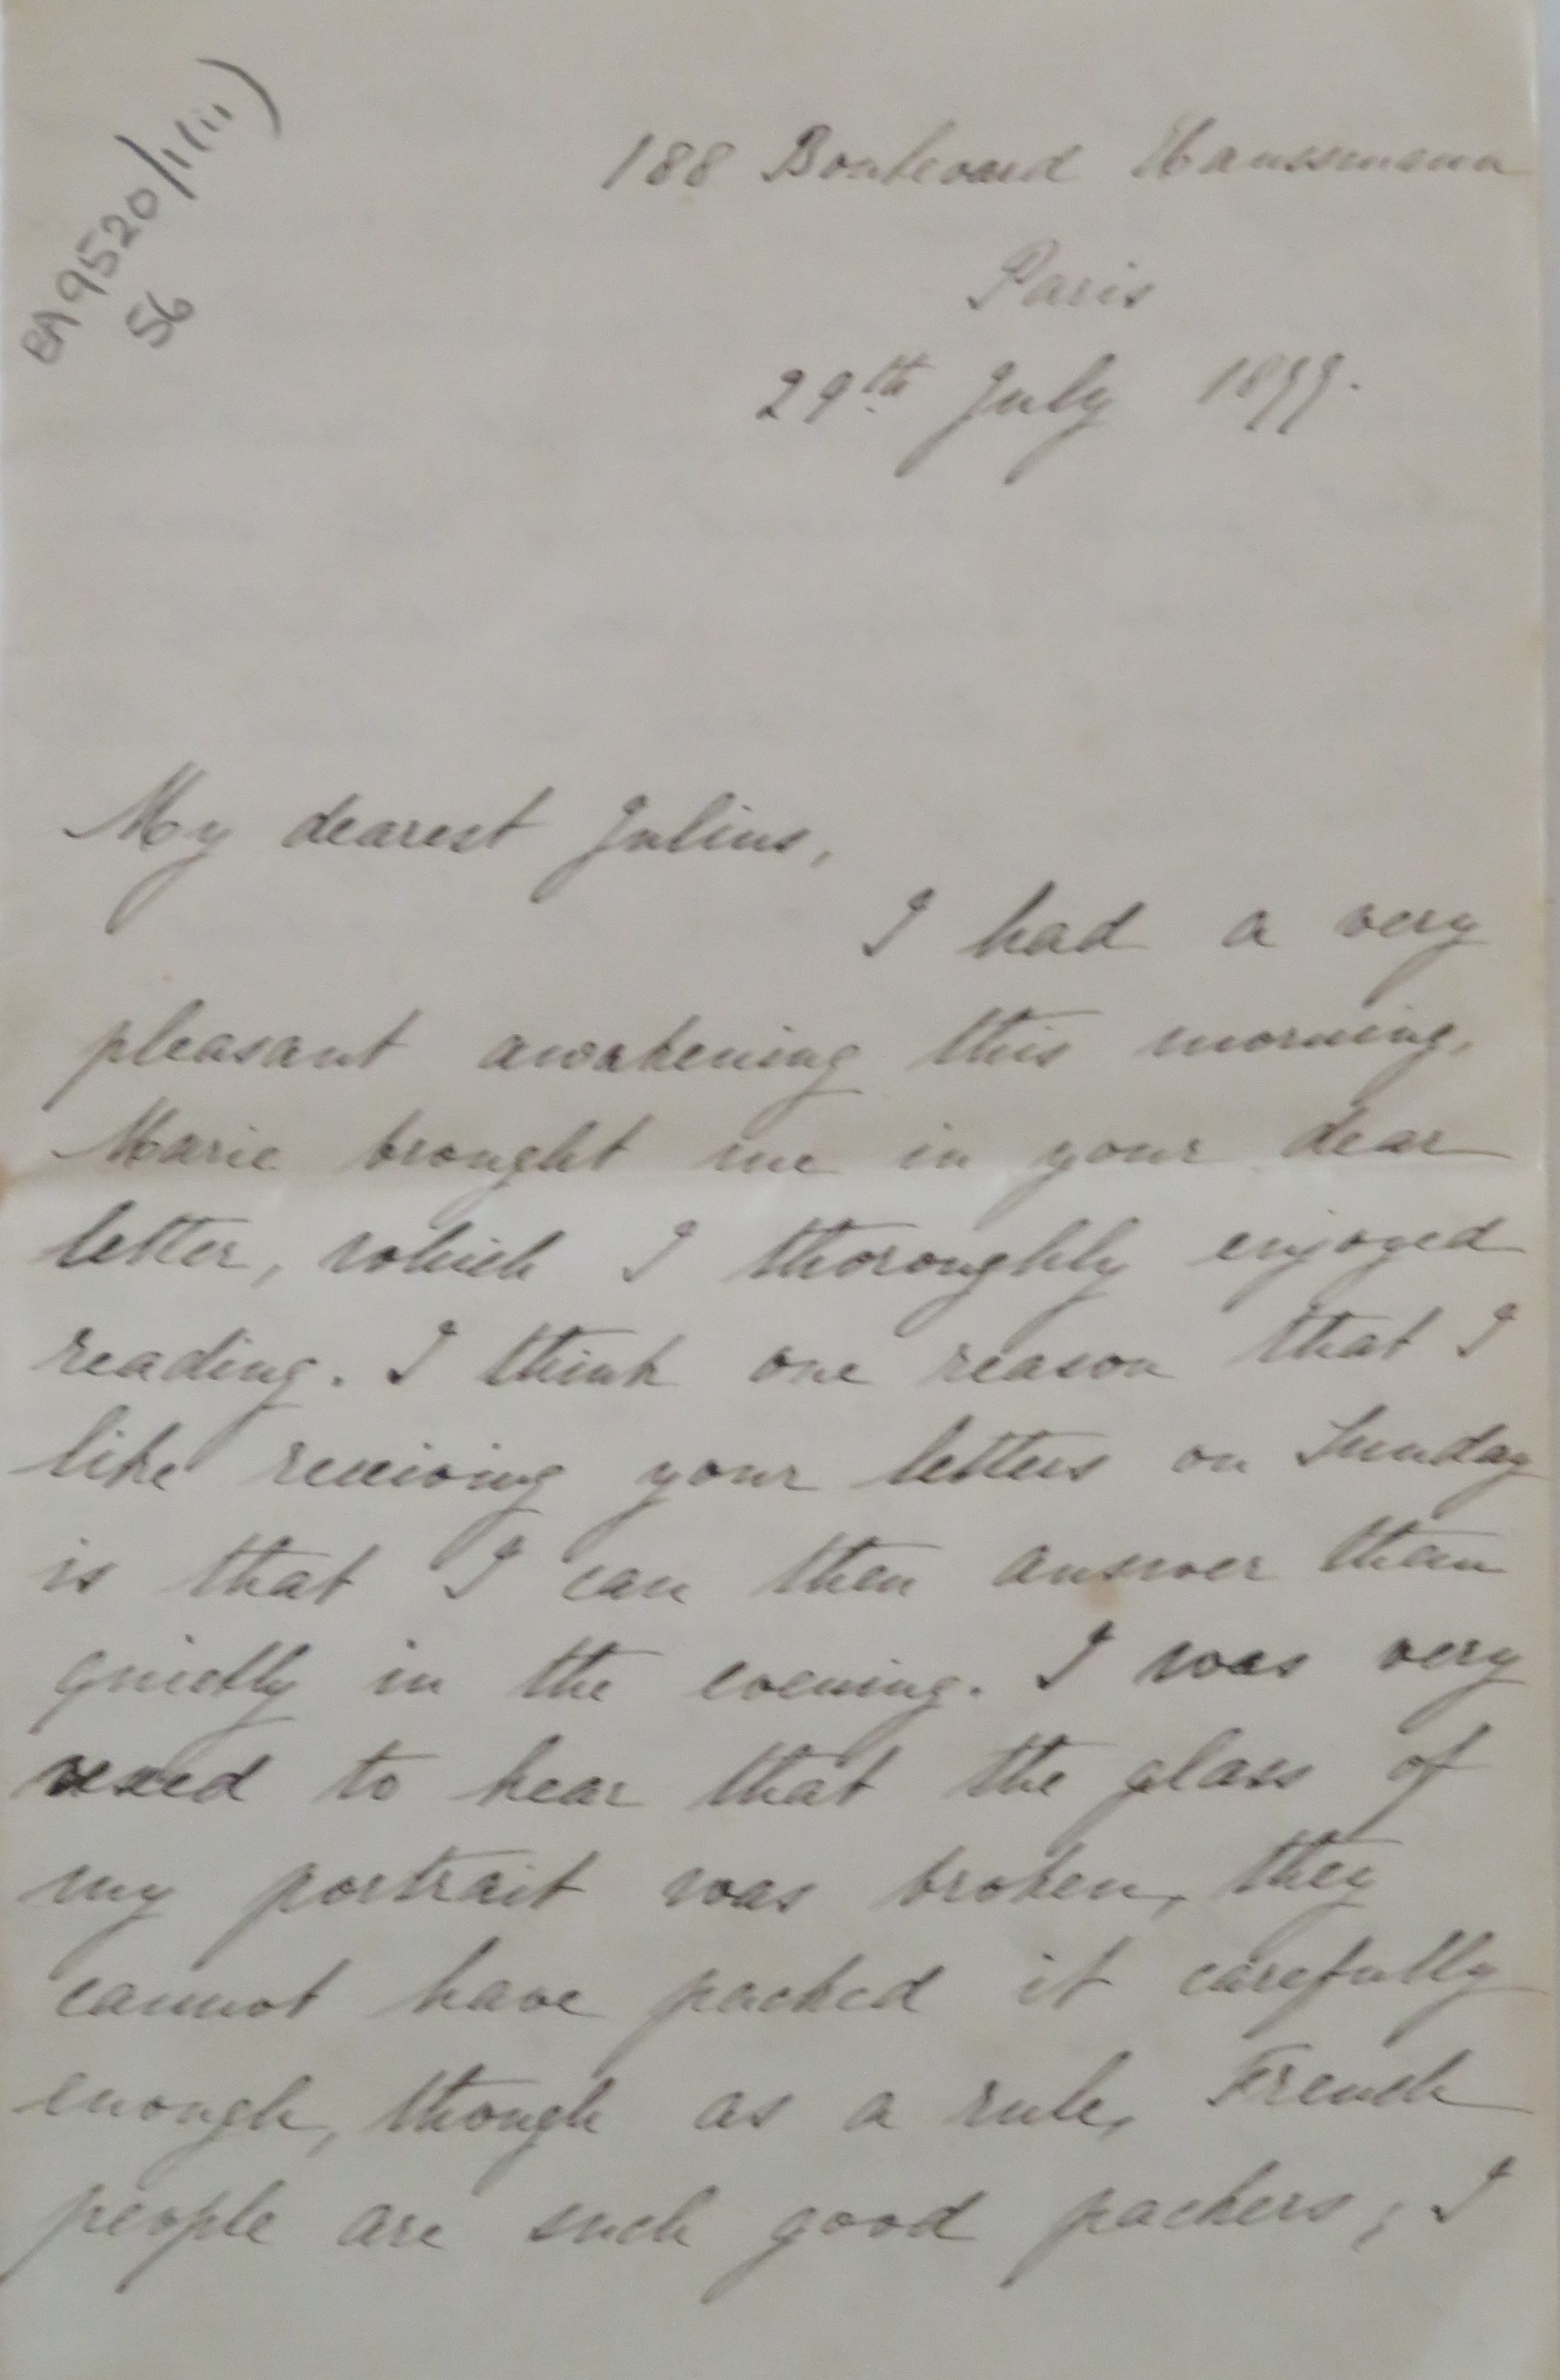 BA9520/1(ii)
56
188 Boulevard Haussmann
Paris
29th July 1877.
My dearest Julius,
I had a very
pleasant awakening this morning,
Marie brought me in your dear
letter, which I thoroughly enjoyed
reading. I think one reason that I
like receiving your letters on Sunday
is that I can then answer them
quietly in the evening. I was very
vexed to hear that the glass of
my portrait was broken, they
cannot have packed it carefully
enough, though as a rule, French
people are such good packers; I